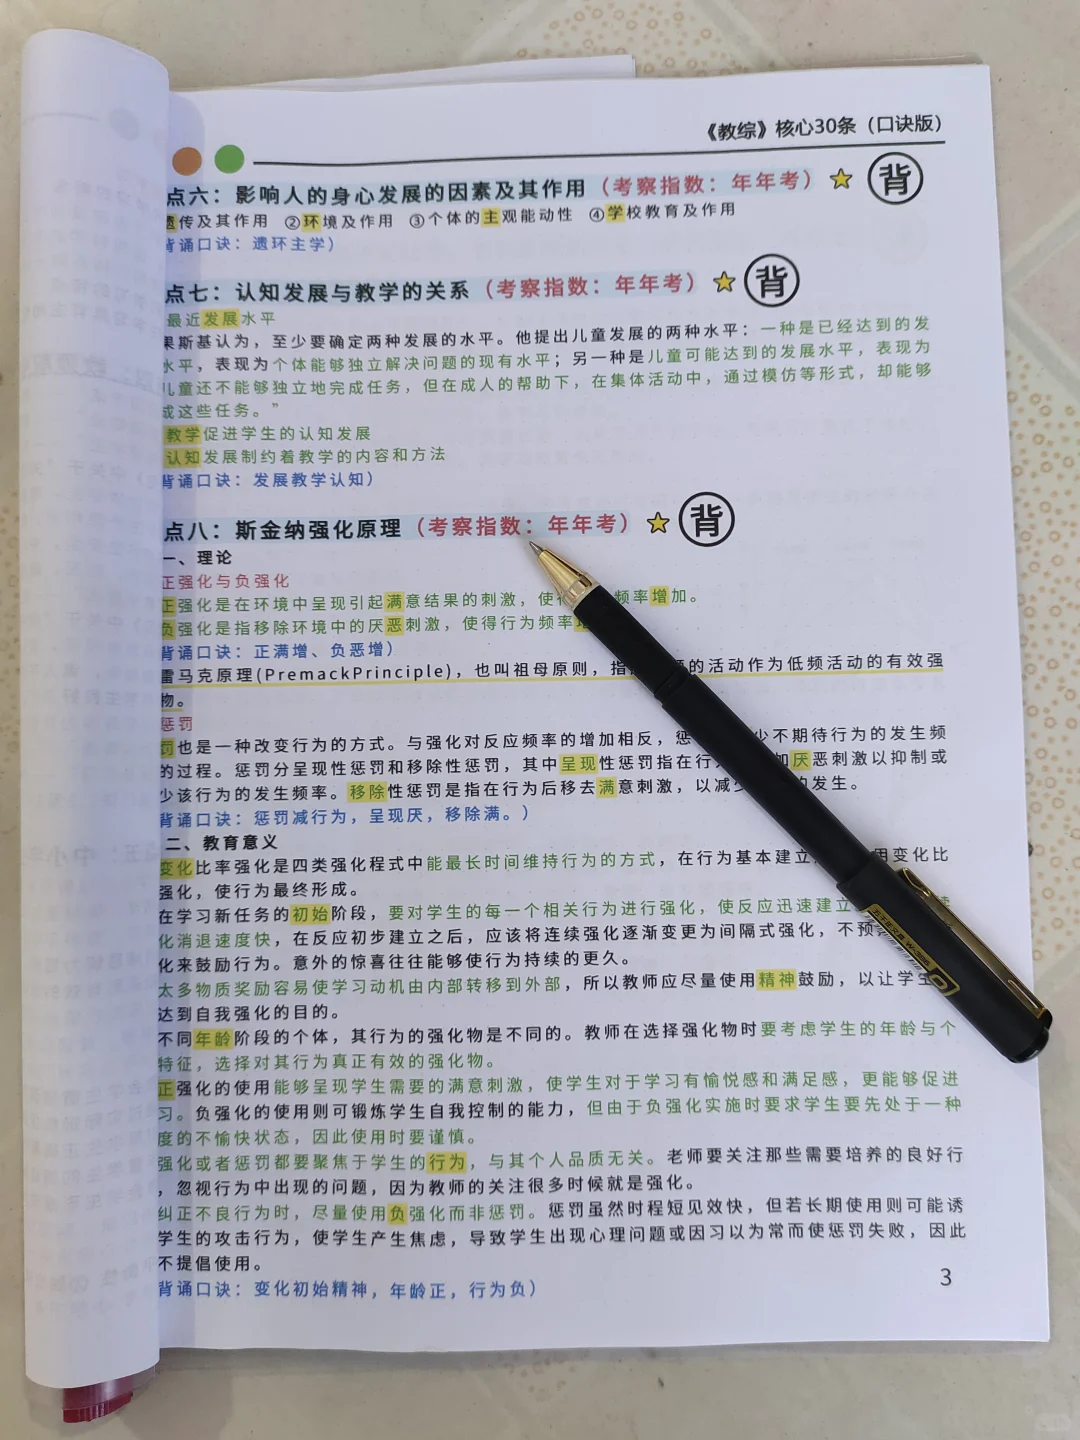 《教综》核心30条（口诀版）
点六：影响人的身心发展的因素及其作用（考察指数：年年考） 背
遗传及其作用 ②环境及作用 ③个体的主观能动性 ④学校教育及作用
背诵口诀：遗环主学）
点七：认知发展与教学的关系（考察指数：年年考） 背
最近发展水平
果斯基认为，至少要确定两种发展的水平。他提出儿童发展的两种水平：一种是已经达到的发
水平，表现为个体能够独立解决问题的现有水平；另一种是儿童可能达到的发展水平，表现为
儿童还不能够独立地完成任务，但在成人的帮助下，在集体活动中，通过模仿等形式，却能够
成这些任务。”
教学促进学生的认知发展
认知发展制约着教学的内容和方法
背诵口诀：发展教学认知）
点八：斯金纳强化原理（考察指数：年年考） 背
一、理论
正强化与负强化
正强化是在环境中呈现引起满意结果的刺激，使 频率增加。
负强化是指移除环境中的厌恶刺激，使得行为频率
背诵口诀：正满增、负恶增）
雷马克原理(PremackPrinciple)，也叫祖母原则，指 的活动作为低频活动的有效强
物。
惩罚
罚也是一种改变行为的方式。与强化对反应频率的增加相反，惩 少不期待行为的发生频
的过程。惩罚分呈现性惩罚和移除性惩罚，其中呈现性惩罚指在行 加厌恶刺激以抑制或
少该行为的发生频率。移除性惩罚是指在行为后移去满意刺激，以减少 的发生。
背诵口诀：惩罚减行为，呈现厌，移除满。）
二、教育意义
变化比率强化是四类强化程式中能最长时间维持行为的方式，在行为基本建立 用变化比
强化，使行为最终形成。
在学习新任务的初始阶段，要对学生的每一个相关行为进行强化，使反应迅速建立
化消退速度快，在反应初步建立之后，应该将连续强化逐渐变更为间隔式强化，不预
化来鼓励行为。意外的惊喜往往能够使行为持续的更久。
太多物质奖励容易使学习动机由内部转移到外部，所以教师应尽量使用精神鼓励，以让学生
达到自我强化的目的。
不同年龄阶段的个体，其行为的强化物是不同的。教师在选择强化物时要考虑学生的年龄与个
特征，选择对其行为真正有效的强化物。
正强化的使用能够呈现学生需要的满意刺激，使学生对于学习有愉悦感和满足感，更能够促进
习。负强化的使用则可锻炼学生自我控制的能力，但由于负强化实施时要求学生要先处于一种
度的不愉快状态，因此使用时要谨慎。
强化或者惩罚都要聚焦于学生的行为，与其个人品质无关。老师要关注那些需要培养的良好行
，忽视行为中出现的问题，因为教师的关注很多时候就是强化。
纠正不良行为时，尽量使用负强化而非惩罚。惩罚虽然时程短见效快，但若长期使用则可能诱
学生的攻击行为，使学生产生焦虑，导致学生出现心理问题或因习以为常而使惩罚失败，因此
不提倡使用。
背诵口诀：变化初始精神，年龄正，行为负）
3